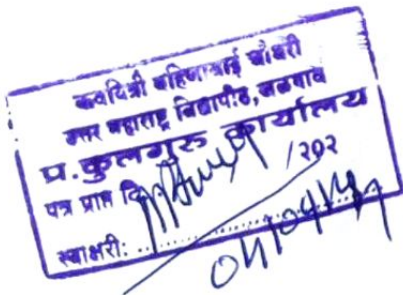 कवयित्री बहिणाबाई चौधरी
उत्तर महाराष्ट्र विद्यापीठ, जळगाव
प्र. कुलगुरु कार्यालय
पत्र प्राप्त दि. /202
स्वाक्षरी: